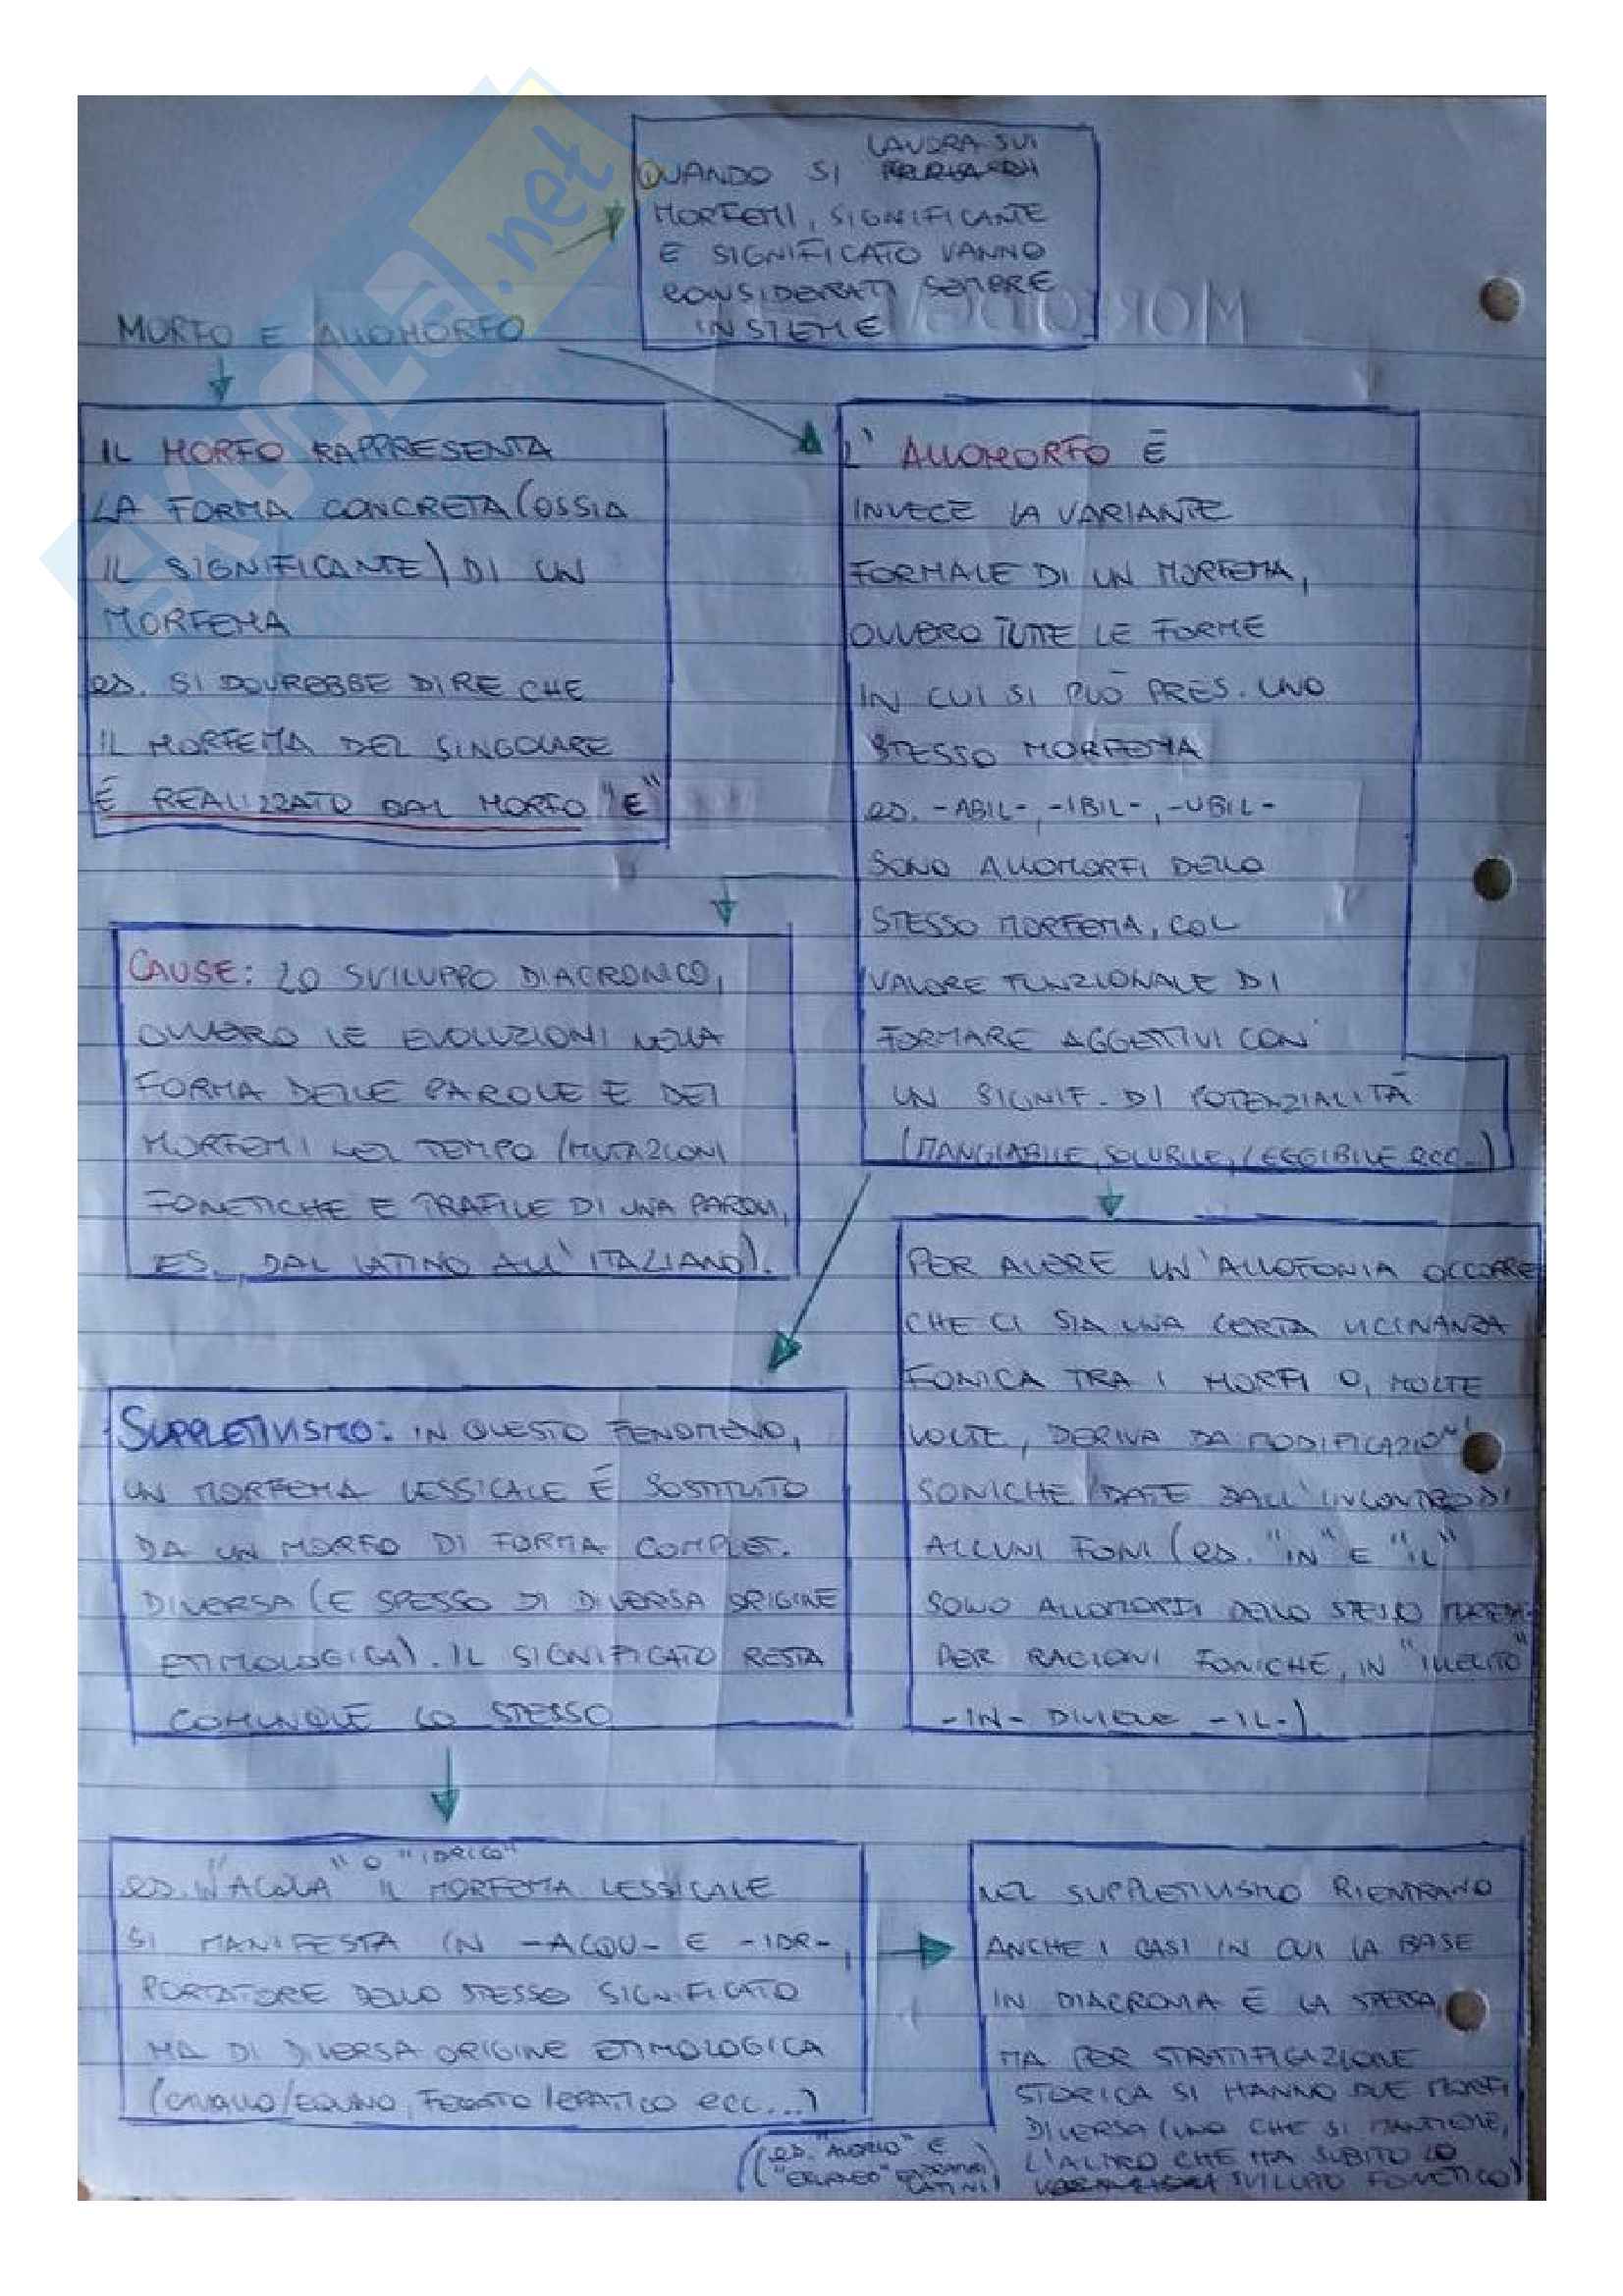 LAVORA SUI
QUANDO SI
MORFEMI, SIGNIFICANTE
E SIGNIFICATO VANNO
CONSIDERATI SEMPRE
INSIEME
MORFO E ALLOMORFO
IL MORFO RAPPRESENTA
LA FORMA CONCRETA (OSSIA
IL SIGNIFICANTE) DI UN
MORFEMA
es. SI DOVREBBE DIRE CHE
IL MORFEMA DEL SINGOLARE
É REALIZZATO DAL MORFO "E"
L'ALLOMORFO È
INVECE LA VARIANTE
FORMALE DI UN MORFEMA,
OVVERO TUTTE LE FORME
IN CUI SI PUÒ PRES. UNO
STESSO MORFEMA
es. -ABIL-, -IBIL-, -UBIL-
SONO ALLOMORFI DELLO
STESSO MORFEMA, COL
VALORE FUNZIONALE DI
FORMARE AGGETTIVI CON
UN SIGNIF. DI POTENZIALITÀ
(MANGIABILE, SOLUBILE, LEGGIBILE ecc..)
CAUSE: LO SVILUPPO DIACRONICO,
OVVERO LE EVOLUZIONI NELLA
FORMA DELLE PAROLE E DEI
MORFEMI NEL TEMPO (MUTAZIONI
FONETICHE E TRAFILE DI UNA PAROLA,
ES. DAL LATINO ALL'ITALIANO).
PER AVERE UN'ALLOFONIA OCCORRE
CHE CI SIA UNA CERTA VICINANZA
FONICA TRA I MORFI O, MOLTE
VOLTE, DERIVA DA MODIFICAZIONI
SONICHE DATE DALL'INCONTRO DI
ALCUNI FONI (es. "IN" E "IL"
SONO ALLOMORFI DELLO STESSO
PER RAGIONI FONICHE, IN "ILLECITO"
-IN- DIVIENE -IL-)
SUPPLETIVISMO: IN QUESTO FENOMENO,
UN MORFEMA LESSICALE É SOSTITUITO
DA UN MORFO DI FORMA COMPLET.
DIVERSA (E SPESSO DI DIVERSA ORIGINE
ETIMOLOGICA). IL SIGNIFICATO RESTA
COMUNQUE LO STESSO
es. IN "ACQUA" O "IDRICO" IL MORFEMA LESSICALE
SI MANIFESTA IN -ACQU- E -IDR-,
PORTATORE DELLO STESSO SIGNIFICATO
MA DI DIVERSA ORIGINE ETIMOLOGICA
(CAVALLO/EQUINO, FEGATO/EPATICO ecc...)
NEL SUPPLETIVISMO RIENTRANO
ANCHE I CASI IN CUI LA BASE
IN DIACRONIA È LA STESSA,
MA PER STRATIFICAZIONE
STORICA SI HANNO DUE MORFI
DIVERSI (UNO CHE SI MANTIENE,
L'ALTRO CHE HA SUBITO LO
SVILUPPO FONETICO)
(es. "AVORIO" E
"EBURNEO"
LATINI)
SKUOLA.net